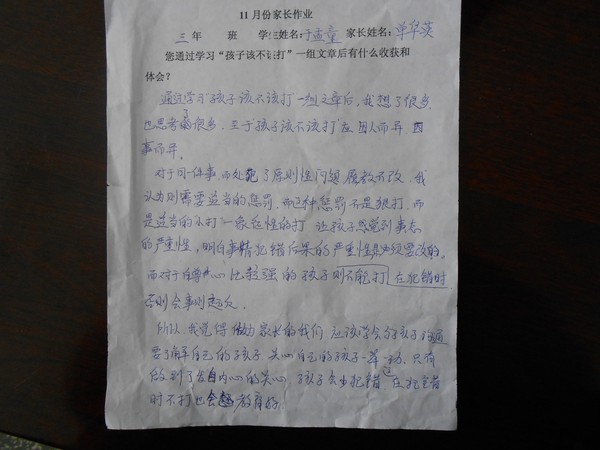 11月份家长作业
三年 班 学生姓名:于孟童 家长姓名:单华英
您通过学习“孩子该不该打”一组文章后有什么收获和
体会?
通过学习孩子该不该打一组文章后,我想了很多,
也思考了很多.至于孩子该不该打应因人而异.因
事而异.
对于同一件事,而处犯了原则性问题屡教不改,我
认为则需要适当的惩罚.而这种惩罚不是狠打,而
是适当的小打一象征性的打 让孩子感觉到事态
的严重性,明白事情犯错后果的严重性是必须要改的.
而对于自尊心比较强的孩子则不能打在犯错时
否则会事则起反.
所以,我觉得做为家长的我们,应该学会与孩子沟通
要了解自己的孩子.关心自己的孩子一举一动.只有
做到了发自内心的关心,孩子会少犯错.在犯这错
时不打也会教育好!